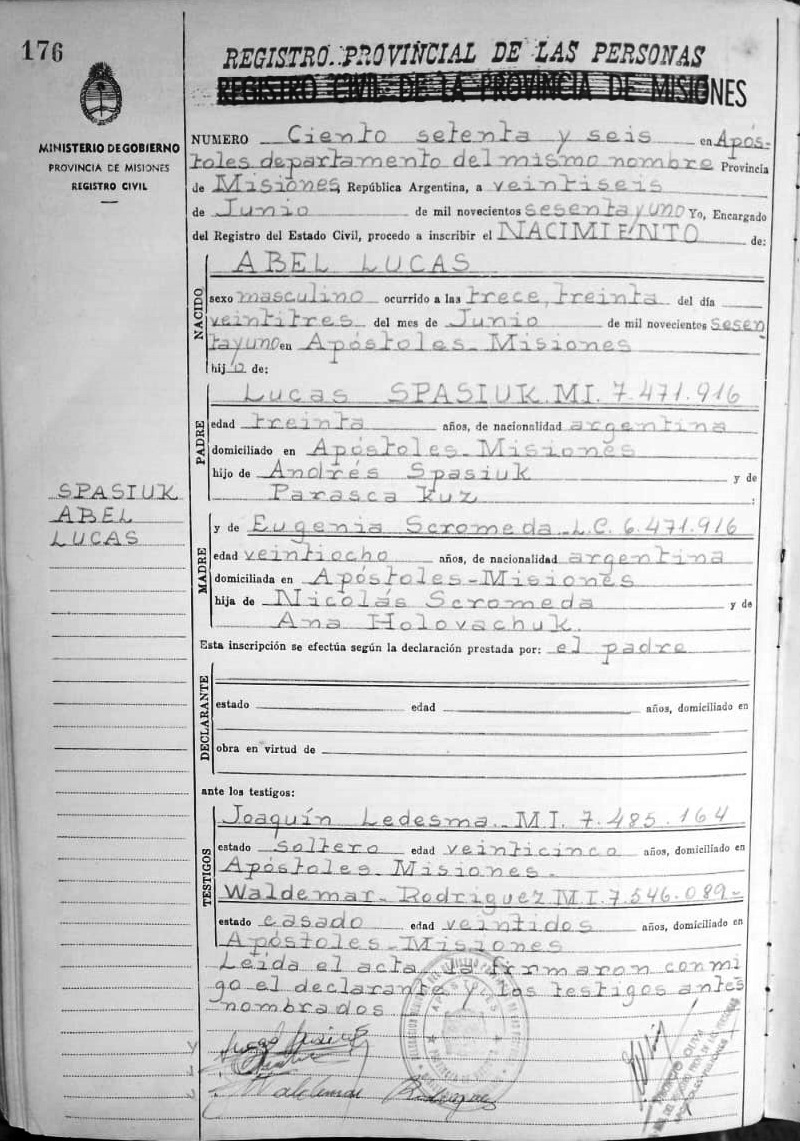 176
MINISTERIO DE GOBIERNO
PROVINCIA DE MISIONES
REGISTRO CIVIL
REGISTRO PROVINCIAL DE LAS PERSONAS
REGISTRO CIVIL DE LA PROVINCIA DE MISIONES
NUMERO Ciento setenta y seis en Após-
toles departamento del mismo nombre Provincia
de Misiones, República Argentina, a veintiseis
de Junio de mil novecientos sesenta y uno Yo, Encargado
del Registro del Estado Civil, procedo a inscribir el NACIMIENTO de:
NACIDO
ABEL LUCAS
sexo masculino ocurrido a las trece, treinta del día
veintitres del mes de Junio de mil novecientos sesen
ta y uno en Apóstoles - Misiones
hijo de:
PADRE
Lucas SPASIUK. MI. 7.471.916
edad treinta años, de nacionalidad argentina
domiciliado en Apóstoles - Misiones
hijo de Andrés Spasiuk y de
Parasca Kuz
SPASIUK
ABEL
LUCAS
MADRE
y de Eugenia Scromeda - L.C. 6.471.916
edad veintiocho años, de nacionalidad argentina
domiciliada en Apóstoles - Misiones
hija de Nicolás Scromeda y de
Ana Holovachuk.
Esta inscripción se efectúa según la declaración prestada por: el padre
DECLARANTE
estado edad años, domiciliado en
obra en virtud de
ante los testigos:
TESTIGOS
Joaquín Ledesma - M.I. 7.485.164
estado soltero edad veinticinco años, domiciliado en
Apóstoles - Misiones -
Waldemar - Rodriguez M.I. 7.546.089-
estado casado edad veintidos años, domiciliado en
Apóstoles - Misiones
Leída el acta la firmaron conmi
go el declarante y los testigos antes
nombrados
Waldemar Rodriguez